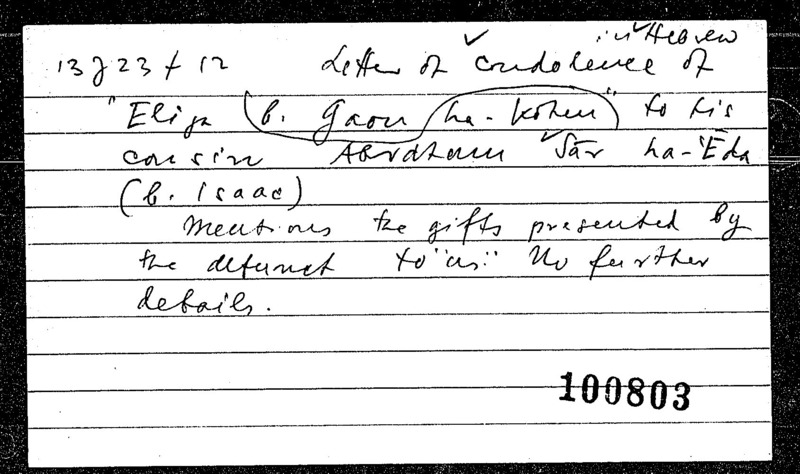 in Hebrew
13 J 23 f 12 Letter of condolence of
"Elija (b. Gaon ha-Kohen" to his
cousin Abraham Śar ha-'Ēda
(b. Isaac)
Mentions the gifts presented by
the defunct to "us". No further
details.
100803